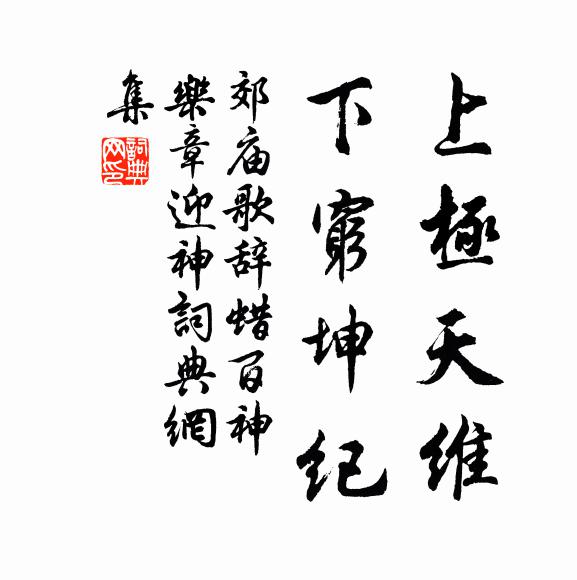 上極天維
下窮坤紀
郊庙歌辞蜡百神
樂章迎神詞典網
集
詞典网印